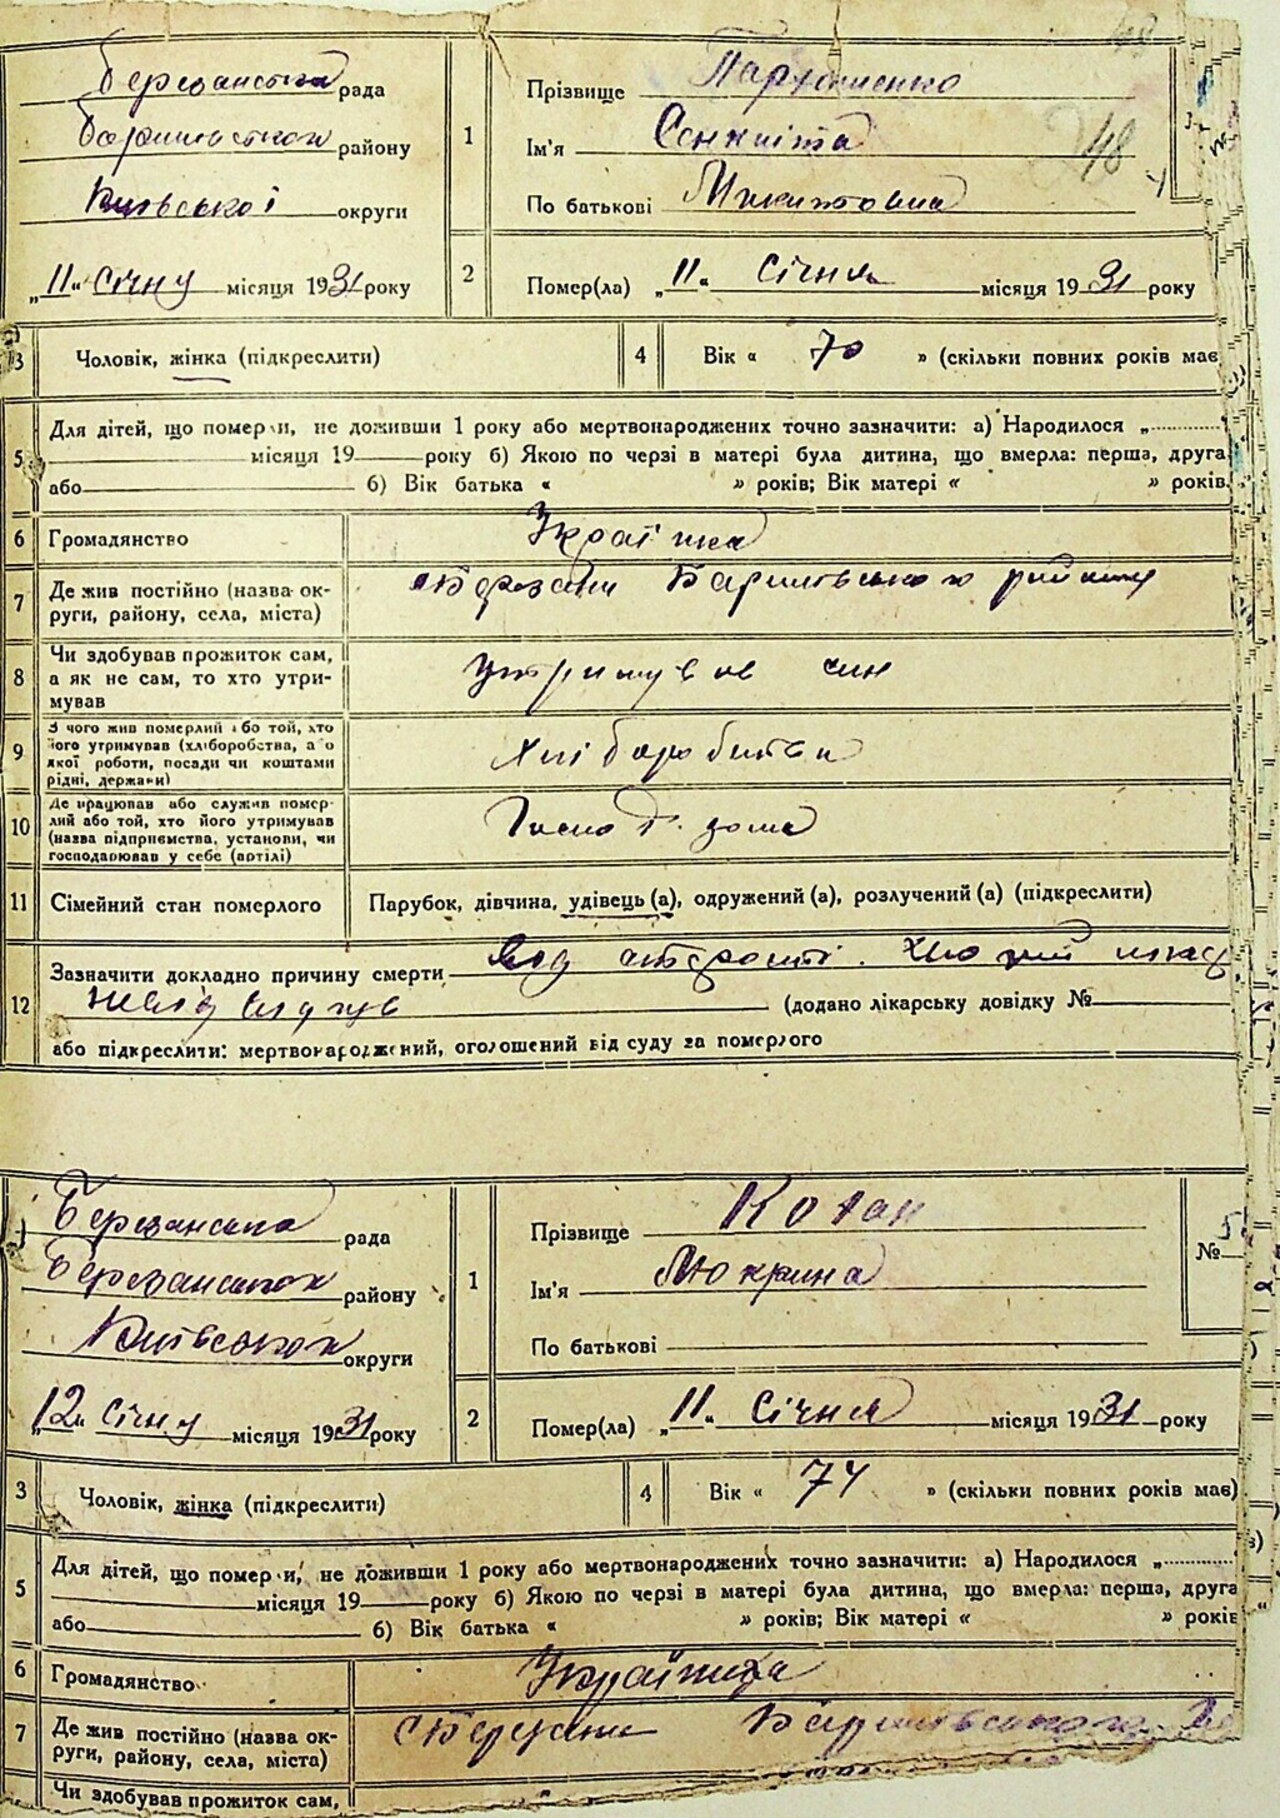 48
Березанська рада
Баришівського району
Київської округи
„11“ січну місяця 1931 року
1
Прізвище
Ім'я
По батькові Микитовна
48
2
Помер(ла) „11“ січня місяця 1931 року
3 Чоловік, жінка (підкреслити)
4 Вік « 70 » (скільки повних років має
5
Для дітей, що померли, не доживши 1 року або мертвонароджених точно зазначити: а) Народилося „
місяця 19 року б) Якою по черзі в матері була дитина, що вмерла: перша, друга
або б) Вік батька « » років; Вік матері « » років.
6 Громадянство Україика
7
Де жив постійно (назва ок-
руги, району, села, міста)
Березани Баришівського району
8
Чи здобував прожиток сам,
а як не сам, то хто утри-
мував
утримував син
9
З чого жив померлий або той, хто
його утримував (хліборобства, або
якої роботи, посади чи коштами
рідні, держави)
Хліборобства
10
Де працював або служив помер-
лий або той, хто його утримував
(назва підприємства, установи, чи
господарював у себе (артілі)
Госпо д. дома
11 Сімейний стан померлого
Парубок, дівчина, удівець (а), одружений (а), розлучений (а) (підкреслити)
12
Зазначити докладно причину смерти од старості.
(додано лікарську довідку №
або підкреслити: мертвонароджений, оголошений від суду за померлого
Березанська рада
Березанського району
Київського округи
„12“ січну місяця 1931 року
1
Прізвище Коган
Ім'я Мокрина
По батькові
№ 5
2
Помер(ла) „11“ Січня місяця 1931 року
3 Чоловік, жінка (підкреслити)
4 Вік « 74 » (скільки повних років має)
5
Для дітей, що померли, не доживши 1 року або мертвонароджених точно зазначити: а) Народилося „
місяця 19 року б) Якою по черзі в матері була дитина, що вмерла: перша, друга
або б) Вік батька « » років; Вік матері « » років
6 Громадянство
7
Де жив постійно (назва ок-
руги, району, села, міста)
с Березани Баришівського
Чи здобував прожиток сам,